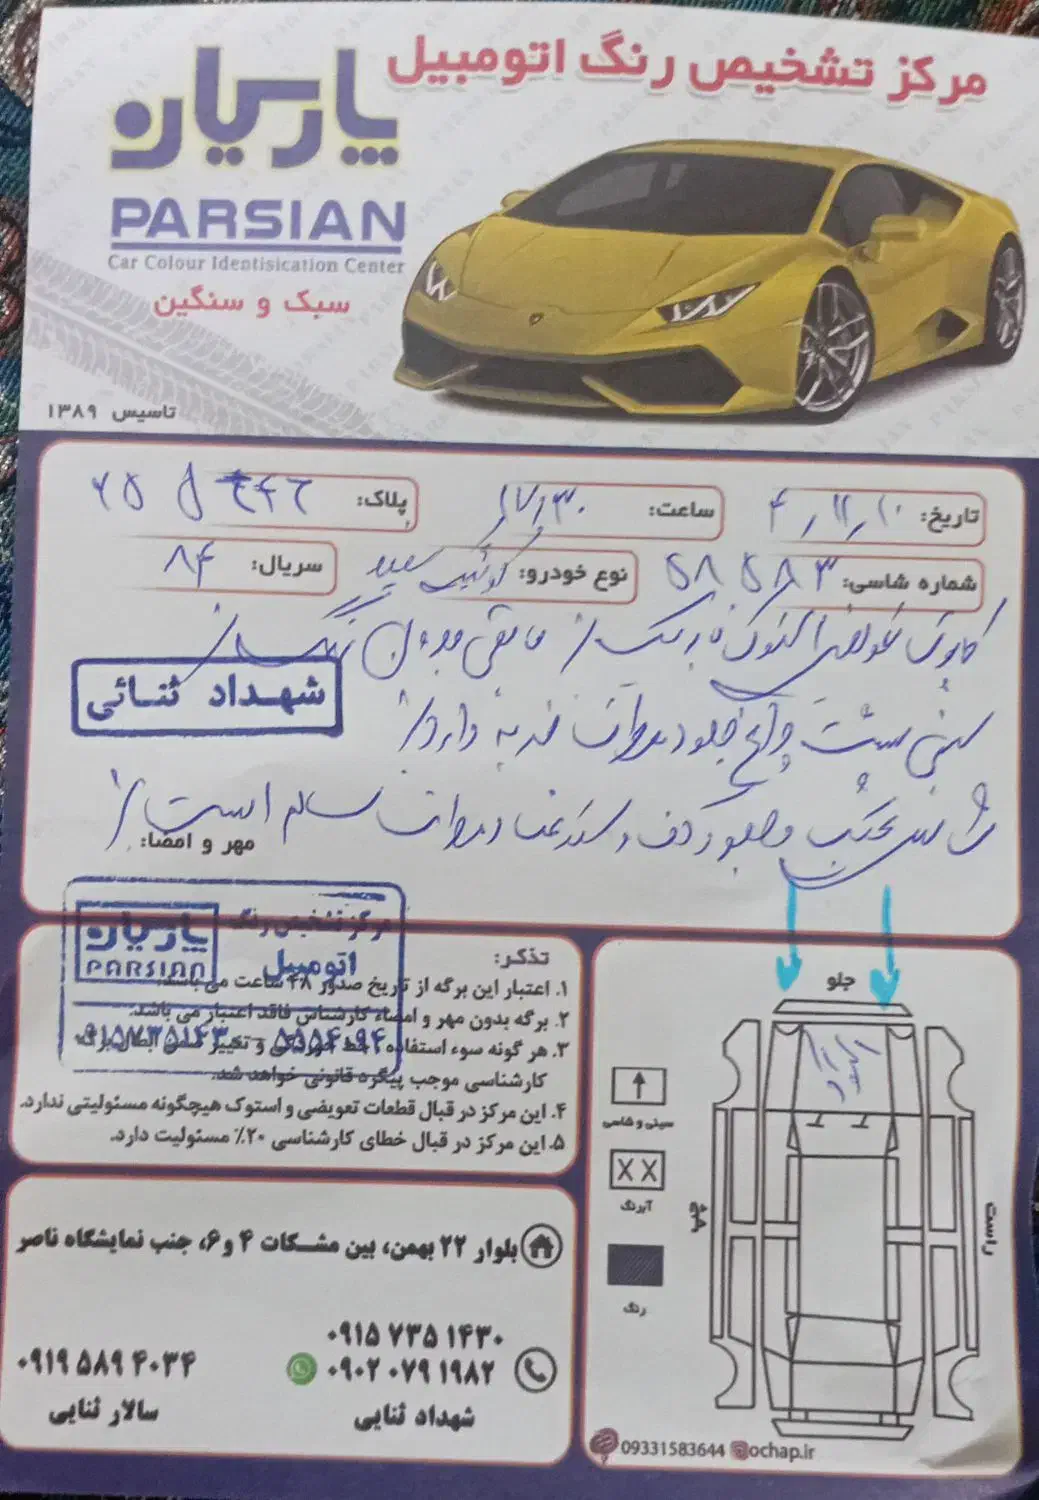 مرکز تشخیص رنگ اتومبیل
پارسیان
PARSIAN
Car Colour Identisication Center
سبک و سنگین
تاسیس ۱۳۸۹
تاریخ: ۴/۱۱/۱۰
ساعت: ۱۷/۳۰
پلاک:
شماره شاسی: ۵۸۰۵۸۳
نوع خودرو: کوئیک سفید
سریال: ۸۴
کاپوت تعویض استوک مابقی بدون رنگ
سینی پشت چراغ جلو ضربه دارد
شاسی عقب و جلو و کف و ستون سالم است
شهداد ثنائی
مهر و امضا:
مرکز تشخیص رنگ
اتومبیل
پارسیان
PARSIAN
۰۹۱۵۷۳۵۱۴۳۰
تذکر:
۱. اعتبار این برگه از تاریخ صدور ۴۸ ساعت می باشد.
۲. برگه بدون مهر و امضاء کارشناس فاقد اعتبار می باشد.
۳. هر گونه سوء استفاده، خط خوردگی و تغییر متن
کارشناسی موجب پیگرد قانونی خواهد شد.
۴. این مرکز در قبال قطعات تعویضی و استوک هیچگونه مسئولیتی ندارد.
۵. این مرکز در قبال خطای کارشناسی ۲۰٪ مسئولیت دارد.
جلو
استوک
سینی و شاسی
X X
آبرنگ
رنگ
چپ
راست
بلوار ۲۲ بهمن، بین مشکات ۴ و ۶، جنب نمایشگاه ناصر
۰۹۱۵ ۷۳۵ ۱۴۳۰
۰۹۰۲ ۰۷۹ ۱۹۸۲
شهداد ثنایی
۰۹۱۹ ۵۸۹ ۴۰۳۴
سالار ثنایی
09331583644 ochap.ir